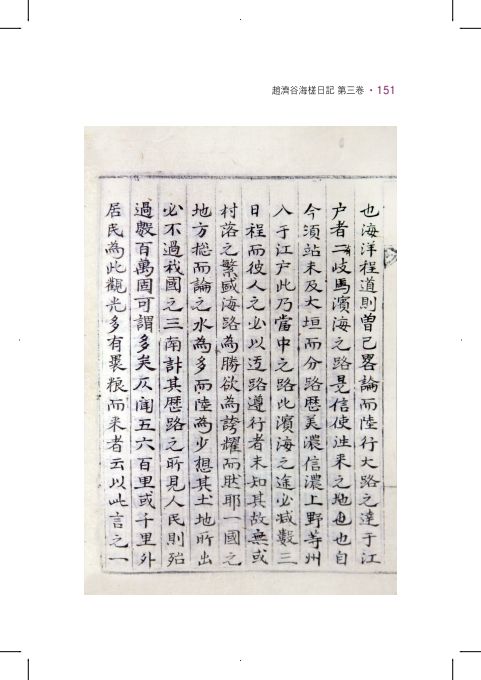 趙濟谷海槎日記 第三卷 · 151
也海洋程道則曾已畧論而陸行大路之達于江
户者二岐焉濱海之路是信使迬来之地也也自
今須站未及大垣而分路歷美濃信濃上野等州
入于江户此乃當中之路比濱海之途必减數三
日程而彼人之必以迃路遵行者未知其故無或
村落之繁盛海路為勝欲為誇耀而肰耶一國之
地方揔而論之水為多而陸為少想其土地所出
必不過我國之三南計其歷路之所見人民則殆
過數百萬固可謂多矣仄聞五六百里或千里外
居民為此觀光多有褁粮而来者云以此言之一